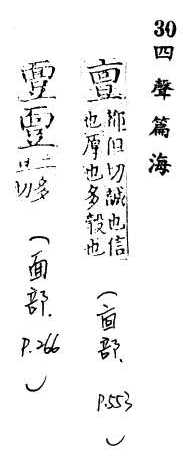 30 四聲篇海
亶 但切誠也信
也厚也多穀也
(㐭部. P.553)
二多
旦切
(面部. P.266)